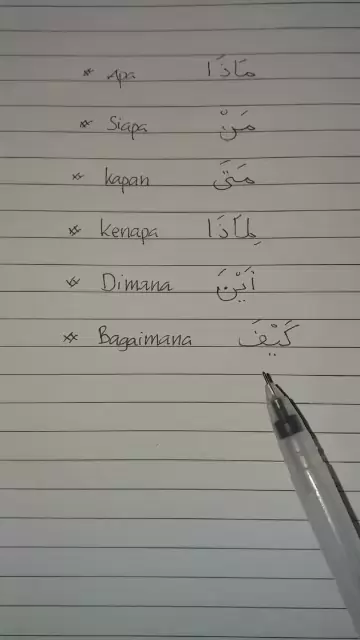 * Apa مَاذَا
* Siapa مَنْ
* kapan مَتَى
* kenapa لِمَاذَا
* Dimana أَيْنَ
* Bagaimana كَيْفَ